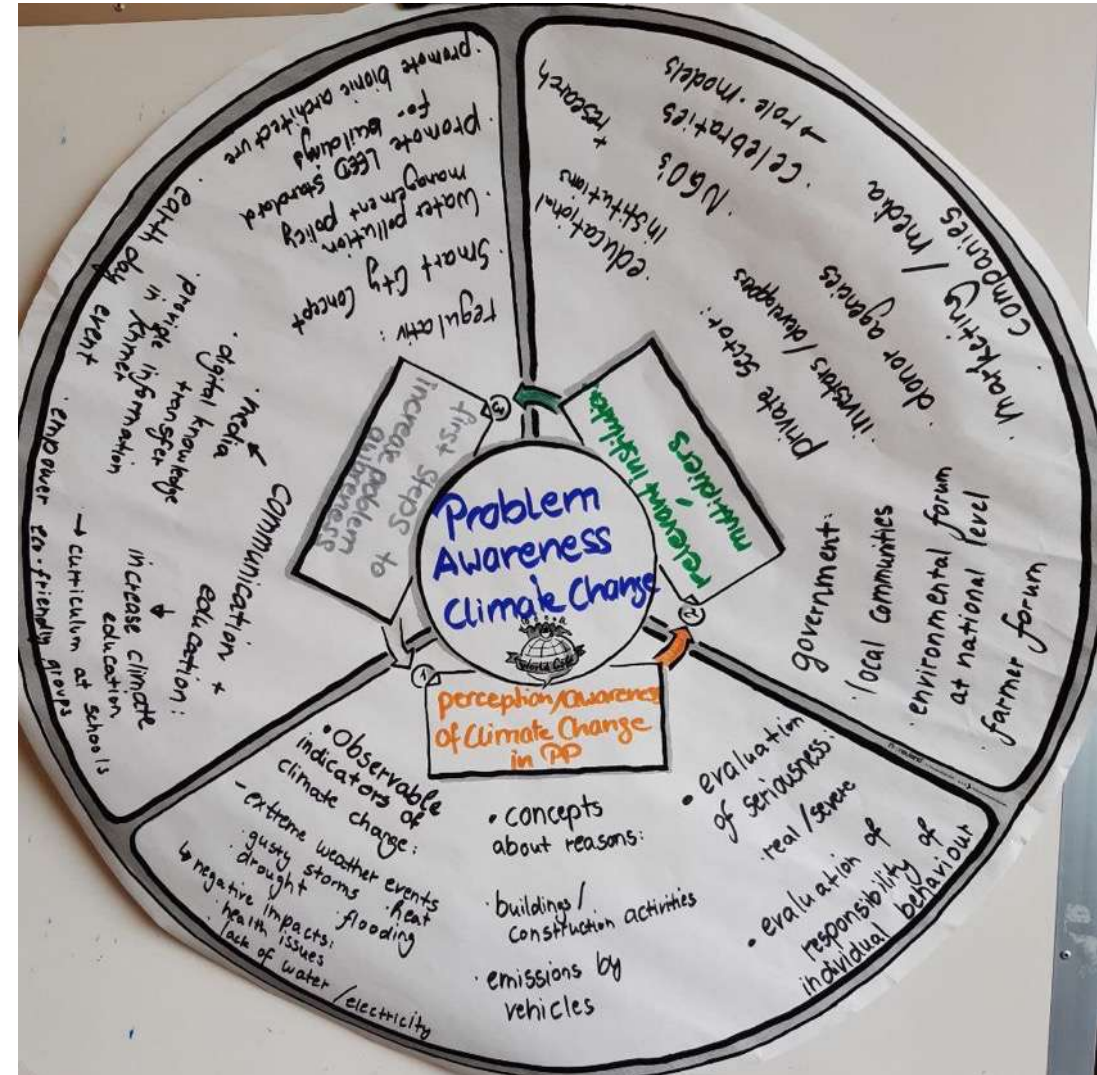 Problem
Awareness
Climate Change
World Café
1
perception/awareness
of Climate Change
in PP
• Observable
indicators of
climate change:
- extreme weather events
· gusty storms · heat
· drought · flooding
↳ negative impacts:
· health issues
lack of water / electricity
• concepts
about reasons:
· buildings /
construction activities
· emissions by
vehicles
• evaluation
of seriousness:
· real / severe
• evaluation of
responsibility of
individual behaviour
2
relevant institutes
/
multipliers
government:
· local communities
· environmental forum
at national level
· farmer forum
private sector:
· investors / developpers
· donor agencies
· marketing / media
companies
· educational
institutions
+ research
· NGO's
· celebraties
→ role-models
3
first steps to
increase problem
regulativ:
· Smart City Concept
· Water pollution
management policy
· promote LEED standard
for buildings
· promote bionic architecture
communication +
education:
↙
· media
· digital knowledge
transfer
· provide information
in Khmer
· earth day event
↓
increase climate
education
→ curriculum at schools
· empower eco-friendly groups